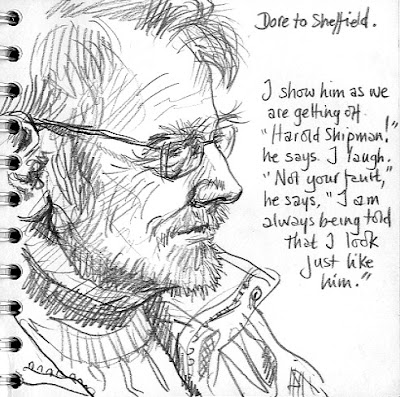 Dore to Sheffield.
I show him as we
are getting off.
"Harold Shipman!"
he says. I laugh.
"Not your fault,"
he says, "I am
always being told
that I look
just like
him."